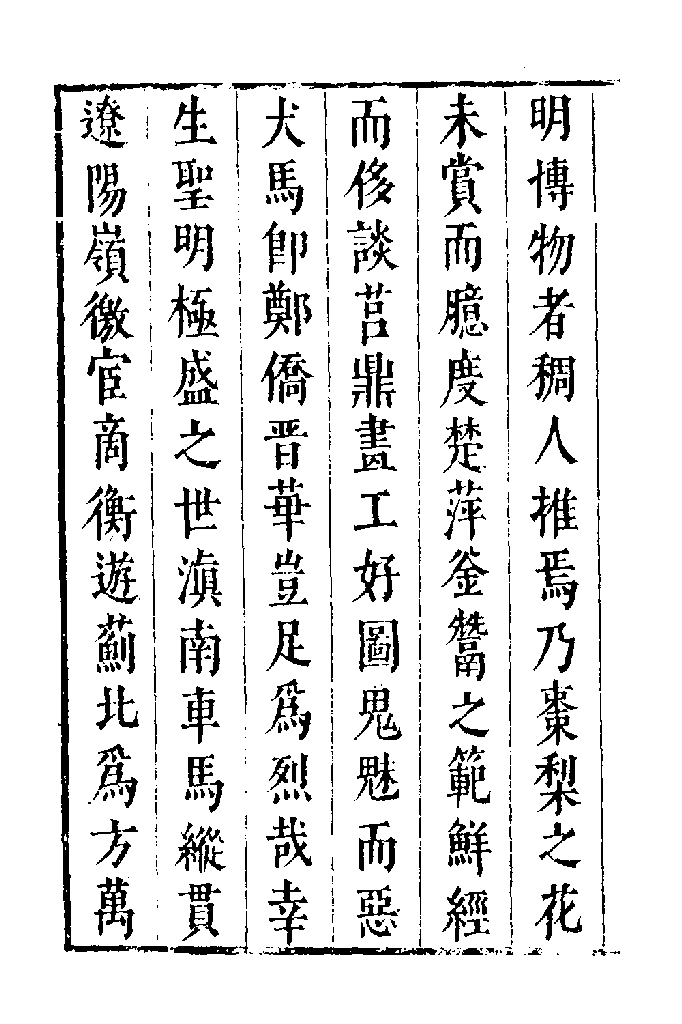 明博物者稠人推焉乃棗梨之花
未賞而臆度楚萍釜鬵之範鮮經
而侈談莒鼎畫工好圖鬼魅而惡
犬馬卽鄭僑晉華豈足爲烈哉幸
生聖明極盛之世滇南車馬縱貫
遼陽嶺徼宦商衡遊薊北爲方萬